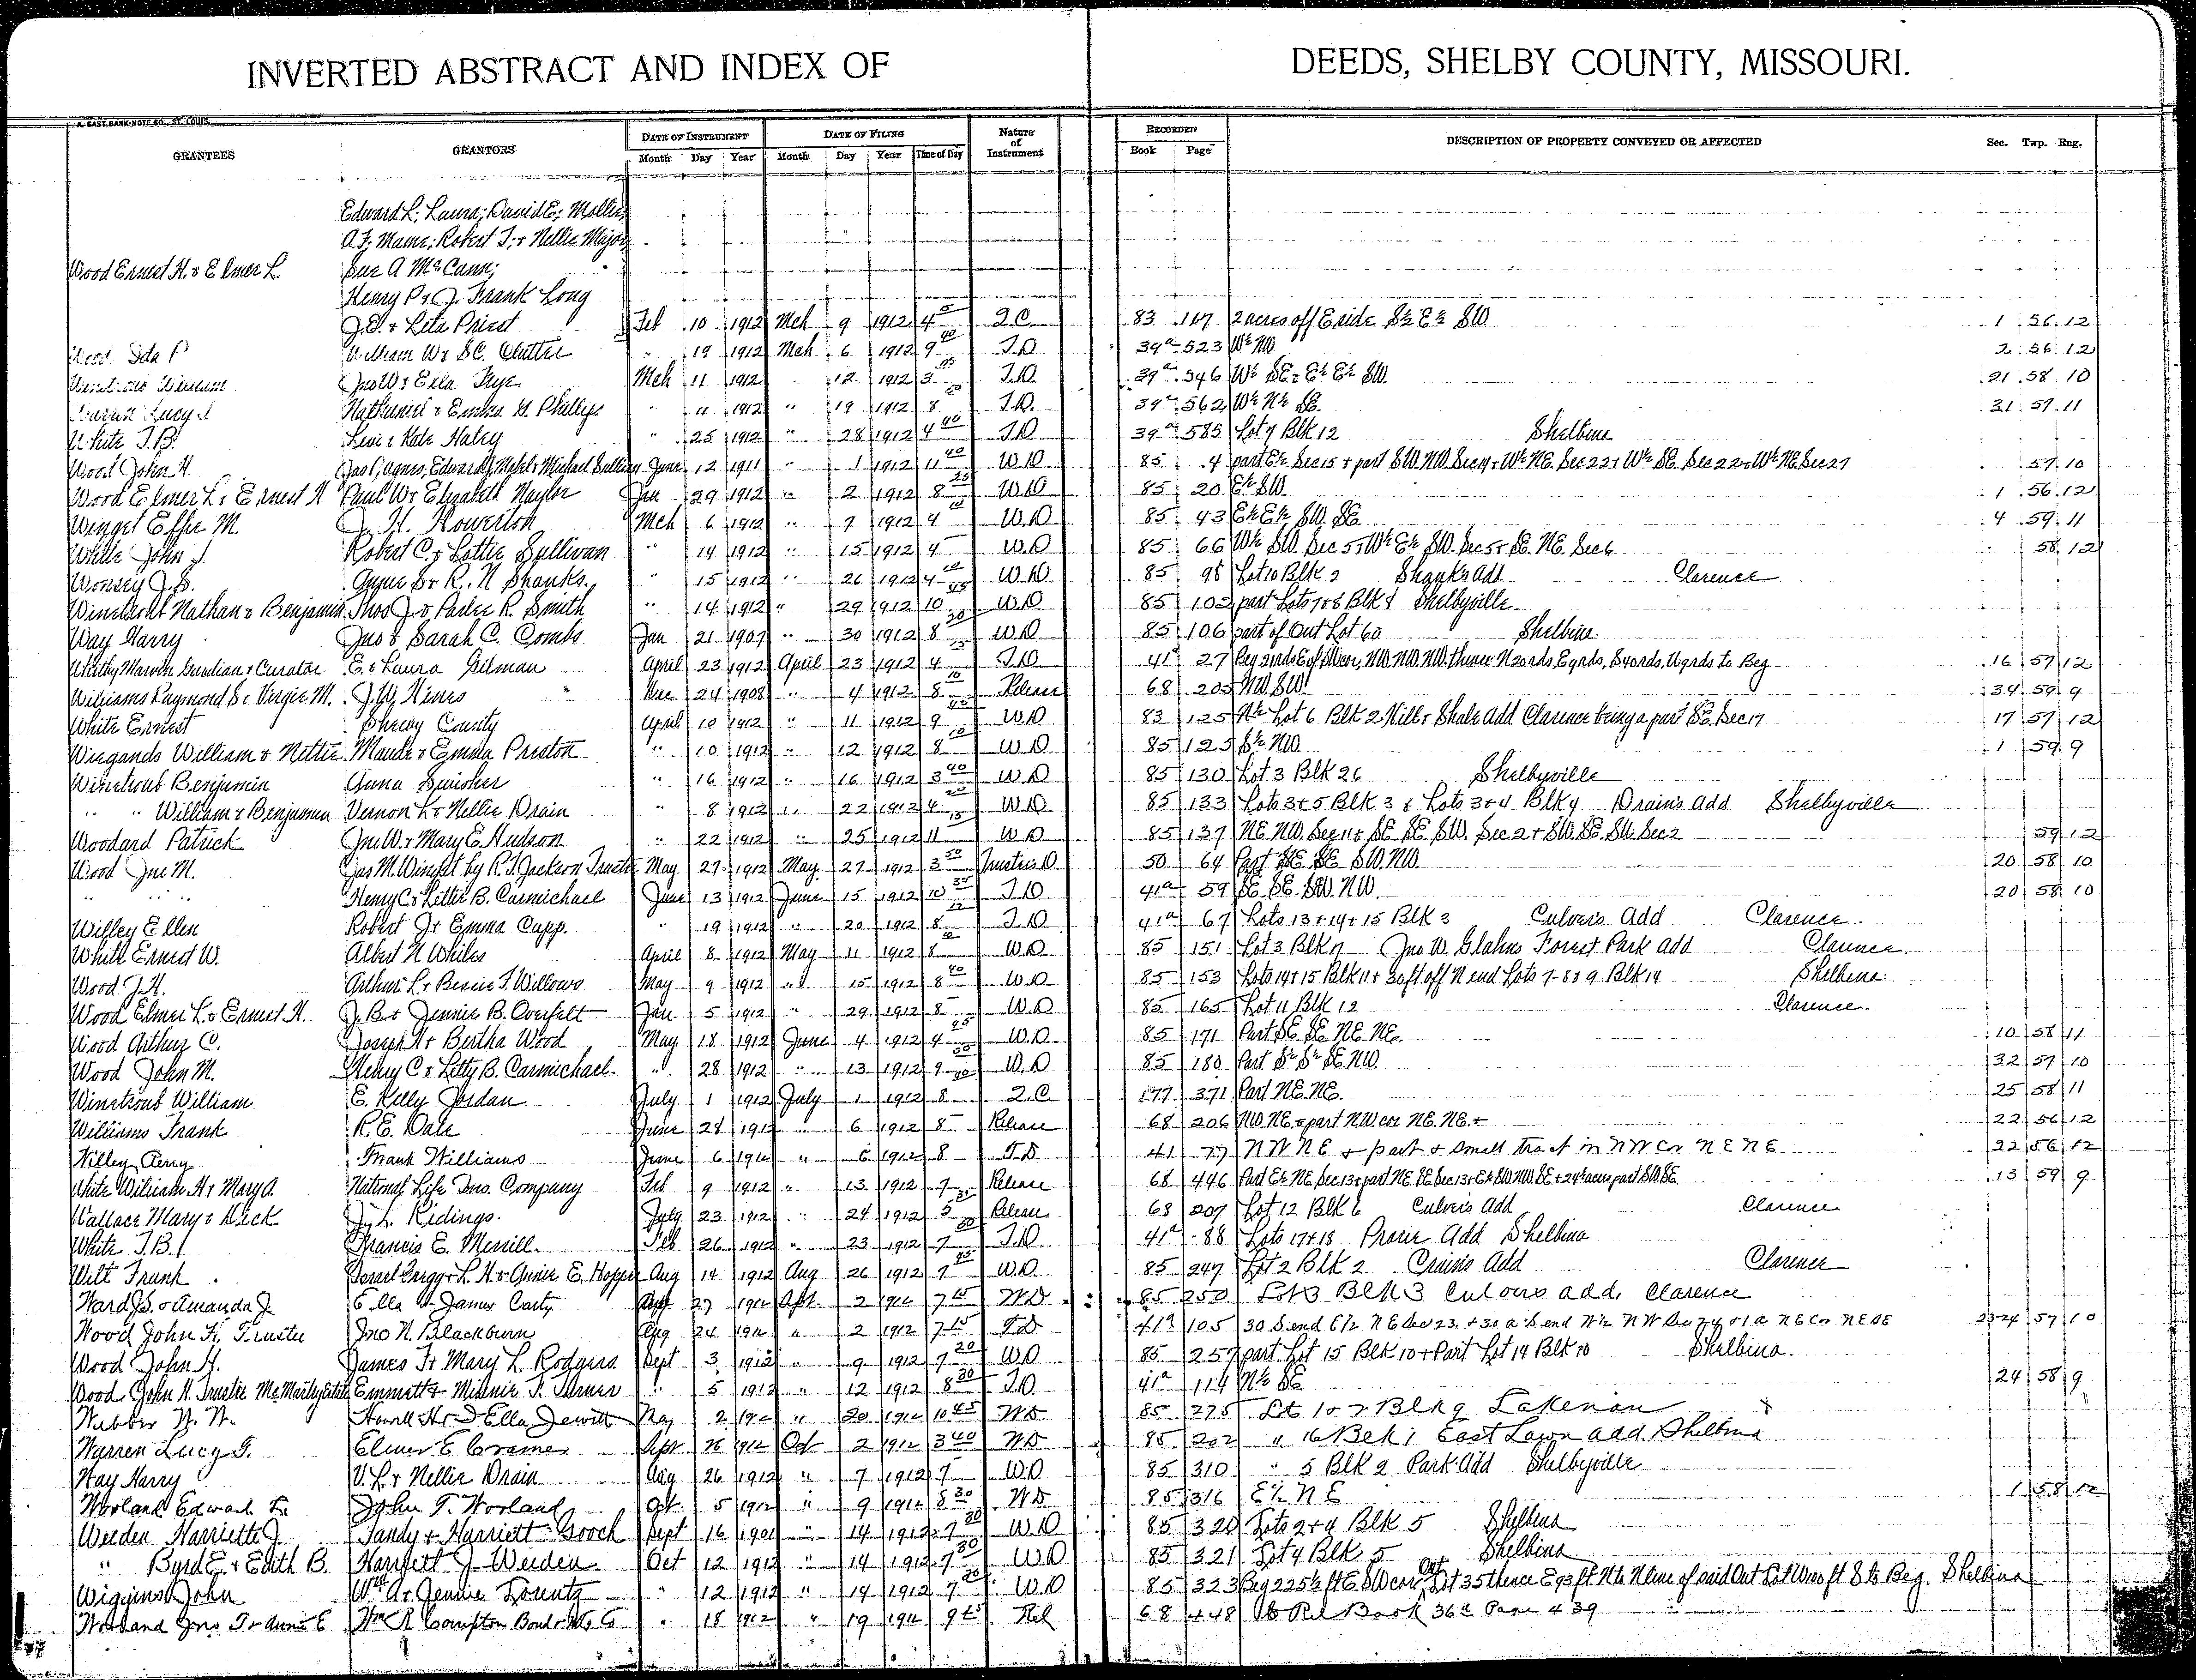 INVERTED ABSTRACT AND INDEX OF DEEDS, SHELBY COUNTY, MISSOURI.
GRANTEES GRANTORS DATE OF INSTRUMENT DATE OF FILING Nature of Instrument RECORDED DESCRIPTION OF PROPERTY CONVEYED OR AFFECTED Sec. Twp. Rng.
Month Day Year Month Day Year Time of Day Book Page
Edward L; Laura; David E; Mollie;
A.F. Mame; Robert T; & Nellie Major
Wood Ernest H. & Elmer L. Sue A McCann;
Henry P & J. Frank Long
J.E. & Leta Priest Feb 10 1912 Mch 9 1912 4 Q.C. 83 2 acres off E side S½ E½ SW 1 56 12
Wood Ida P William W & S.C. Clutter " 19 1912 Mch 6 1912 9 T.D 39a 523 W½ NW 2 56 12
William Jno W & Ella Frye Mch 11 1912 " 12 1912 3 T.D. 39a 546 W½ SE & E½ E½ SW. 21 58 10
Lucy Nathaniel & Emma G. Phillips " 11 1912 " 19 1912 8 T.D. 39a 562 W½ N½ SE. 31 57 11
White T.B. Levi & Kate " 25 1912 " 28 1912 4 40 T.D 39a 585 Lot 7 Blk 12 Shelbina
Wood John H. Jas P, Agnes, Edward, Mabel & Michael June 12 1911 " 1 1912 11 40 W.D 85 4 part E½ Sec 15 & part SW NW Sec 14 & W½ NE. Sec 22 & W½ SE. Sec 22 & W½ NE Sec 27 57 10
Wood Elmer L. & Ernest H Paul W & Elizabeth Naylor Jan 29 1912 " 2 1912 8 25 W.D 85 20 E½ SW. 1 56 12
Winget Effie M. J. H. Howerton Mch 6 1912 " 7 1912 4 W.D 85 43 E½ E½ SW. SE. 4 59 11
White John J. Robert C. & Lottie Sullivan " 14 1912 " 15 1912 4 W.D 85 66 W½ SW. Sec 5 & W½ E½ SW. Sec 5 & SE. NE. Sec 6 58 12
Wonsey J.S. S & R. N Shanks " 15 1912 " 26 1912 4 W.D 85 98 Lot 10 Blk 2 Shanks Add Clarence
Nathan & Benjamin Thos J. & Padee R. Smith " 14 1912 " 29 1912 10 W.D 85 102 part Lots 7 & 8 Blk 8 Shelbyville
Way Harry Jno & Sarah C. Combs Jan 21 1907 " 30 1912 8 W.D 85 106 part of Out Lot 60 Shelbina
Marvin Guardian & Curator E. & Laura Gilman April 23 1912 April 23 1912 4 T.D 41a 27 16 57 12
Williams Raymond S & Virgie M. J.W. Hines Dec 24 1908 " 4 1912 8 Release 68 205 NW SW. 34 59 9
White Ernest Shelby County April 10 1912 " 11 1912 9 W.D 83 125 N½ Lot 6 Blk 2 Hill & Shale Add Clarence being a part SE. Sec 17 17 57 12
Wiegands William & Nettie Maude & Emma Preston " 10 1912 " 12 1912 8 W.D 85 125 S½ NW 1 59 9
Winetroub Benjamin Anna Swisher " 16 1912 " 16 1912 3 40 W.D 85 130 Lot 3 Blk 26 Shelbyville
" " William & Benjamin Vernon L & Nellie Drain " 8 1912 " 22 1912 4 W.D 85 133 Lots 3 & 5 Blk 3 & Lots 3 & 4 Blk 4 Drain's Add Shelbyville
Woodard Patrick Jno W. & Mary E. Hudson " 22 1912 " 25 1912 11 W.D 85 137 NE. NW. Sec 11 & SE. SE. SW. Sec 2 & SW. SE. SW. Sec 2 59 12
Wood Jno M. Jas M. Winget by R.T. Jackson Trustee May 27 1912 May 27 1912 3 50 Trustees D 50 64 Part SE SE SW. NW. 20 58 10
" " " Henry C & Lettie B. Carmichael June 13 1912 June 15 1912 10 35 T.D 41a 59 SE. SE. SW. NW. 20 58 10
Willey Ellen Robert J & Emma Capp. " 19 1912 " 20 1912 8 T.D 41a 67 Lots 13 & 14 & 15 Blk 3 Culvers Add Clarence
Whill Ernest W. Albert N Whiles April 8 1912 May 11 1912 8 W.D 85 151 Lot 3 Blk 17 Jno W. Glahns Forest Park Add Clarence
Wood J.H. Arthur L. & Bessie T. Willows May 9 1912 " 15 1912 8 40 W.D 85 153 Lots 14 & 15 Blk 11 & 30 ft off N end Lots 7-8 & 9 Blk 14 Shelbina
Wood Elmer L. & Ernest H. J. B & Jennie B. Overfelt Jan 5 1912 " 29 1912 8 W.D 85 165 Lot 11 Blk 12 Clarence
Wood Arthur C. Joseph H & Bertha Wood May 18 1912 June 4 1912 4 W.D 85 171 Part SE SE NE. NE. 10 58 11
Wood John M. Henry C & Letty B. Carmichael " 28 1912 " 13 1912 9 W.D 85 180 Part S½ S½ SE. NW. 32 57 10
Winetroub William E. Kelly Jordan July 1 1912 July 1 1912 8 Q.C. 77 371 Part NE. NE. 25 58 11
Williams Frank R.E. Dale June 28 1912 " 6 1912 8 Release 68 206 NW. NE. & part NW. cor NE. NE. 22 56 12
Willey Perry Frank Williams June 6 1912 " 6 1912 8 T.D 41 77 NW NE & part & small tract in NW Cor NE NE 22 56 12
White William H & Mary A. National Life Ins. Company Feb 9 1912 " 13 1912 7 Release 68 446 13 59 9
Wallace Mary & Dick J. L. Ridings. July 23 1912 " 24 1912 3 Release 68 207 Lot 12 Blk 6 Culvers Add Clarence
White T.B. Francis E. Merrill. Feb 26 1912 " 23 1912 7 T.D 41a 88 Lots 17 & 18 Prairie Add Shelbina
Wilt Frank Gregg & L. H. & Annie E. Hopper Aug 14 1912 Aug 26 1912 7 45 W.D. 85 247 Lot 2 Blk 2 Add Clarence
Ward J.S. & Amanda J. Ella & James Carty 27 1912 Sept. 2 1912 7 15 W.D. 85 250 Lot 3 Blk 3 Culvers add. Clarence
Wood John H. Trustee Jno N. Blackburn Aug 24 1912 " 2 1912 7 15 T.D 41a 105 30 S end E½ NE Sec 23 & 30 a S end W½ NW Sec 24 & 1 a NE Cor NE SE 23-24 57 10
Wood John H. James T & Mary L. Rodgers Sept 3 1912 " 9 1912 7 20 W.D 85 257 part Lot 15 Blk 10 & Part Lot 14 Blk 10 Shelbina.
Wood John H. Trustee McMurty Emmett & Minnie F. Turner " 5 1912 " 12 1912 8 30 T.D 41a 114 N½ SE 24 58 9
Webber W. W. Howell H & D Ella Jewett May 2 1912 " 20 1912 10 45 W.D 85 275 Lot 1 & 2 Blk 9 Lakenan
Warren Lucy G. Elmer E Cramer Sept 28 1912 Oct 2 1912 3 40 W.D 85 202 " 16 Blk 1 East Lawn add. Shelbina
Way Harry V. L & Nellie Drain Aug 26 1912 " 7 1912 7 W.D 85 310 " 5 Blk 2 Park Add Shelbyville
Worland Edward L. John T. Worland Oct. 5 1912 " 9 1912 8 30 W.D 85 316 E½ NE 1 58 12
Weeden Harriette J. Tandy & Harriett Gooch Sept 16 1901 " 14 1912 7 30 W.D 85 320 Lots 2 & 4 Blk 5 Shelbina
" Byrd E. & Edith B. Harriett J Weeden Oct 12 1912 " 14 1912 7 30 W.D 85 321 Lot 4 Blk 5 Shelbina
Wiggins John Wm A. & Jennie Lorentz " 12 1912 " 14 1912 7 W.D 85 323 Beg 225½ ft E. SW cor Out Lot 35 thence E 93 ft N to N line of said Out Lot W 100 ft S to Beg. Shelbina
Worland Jno T & Annie E Wm R Compton Bond & Mtg Co " 18 1912 " 19 1912 9 45 Rel 68 448 Rel Book 36a Page 439